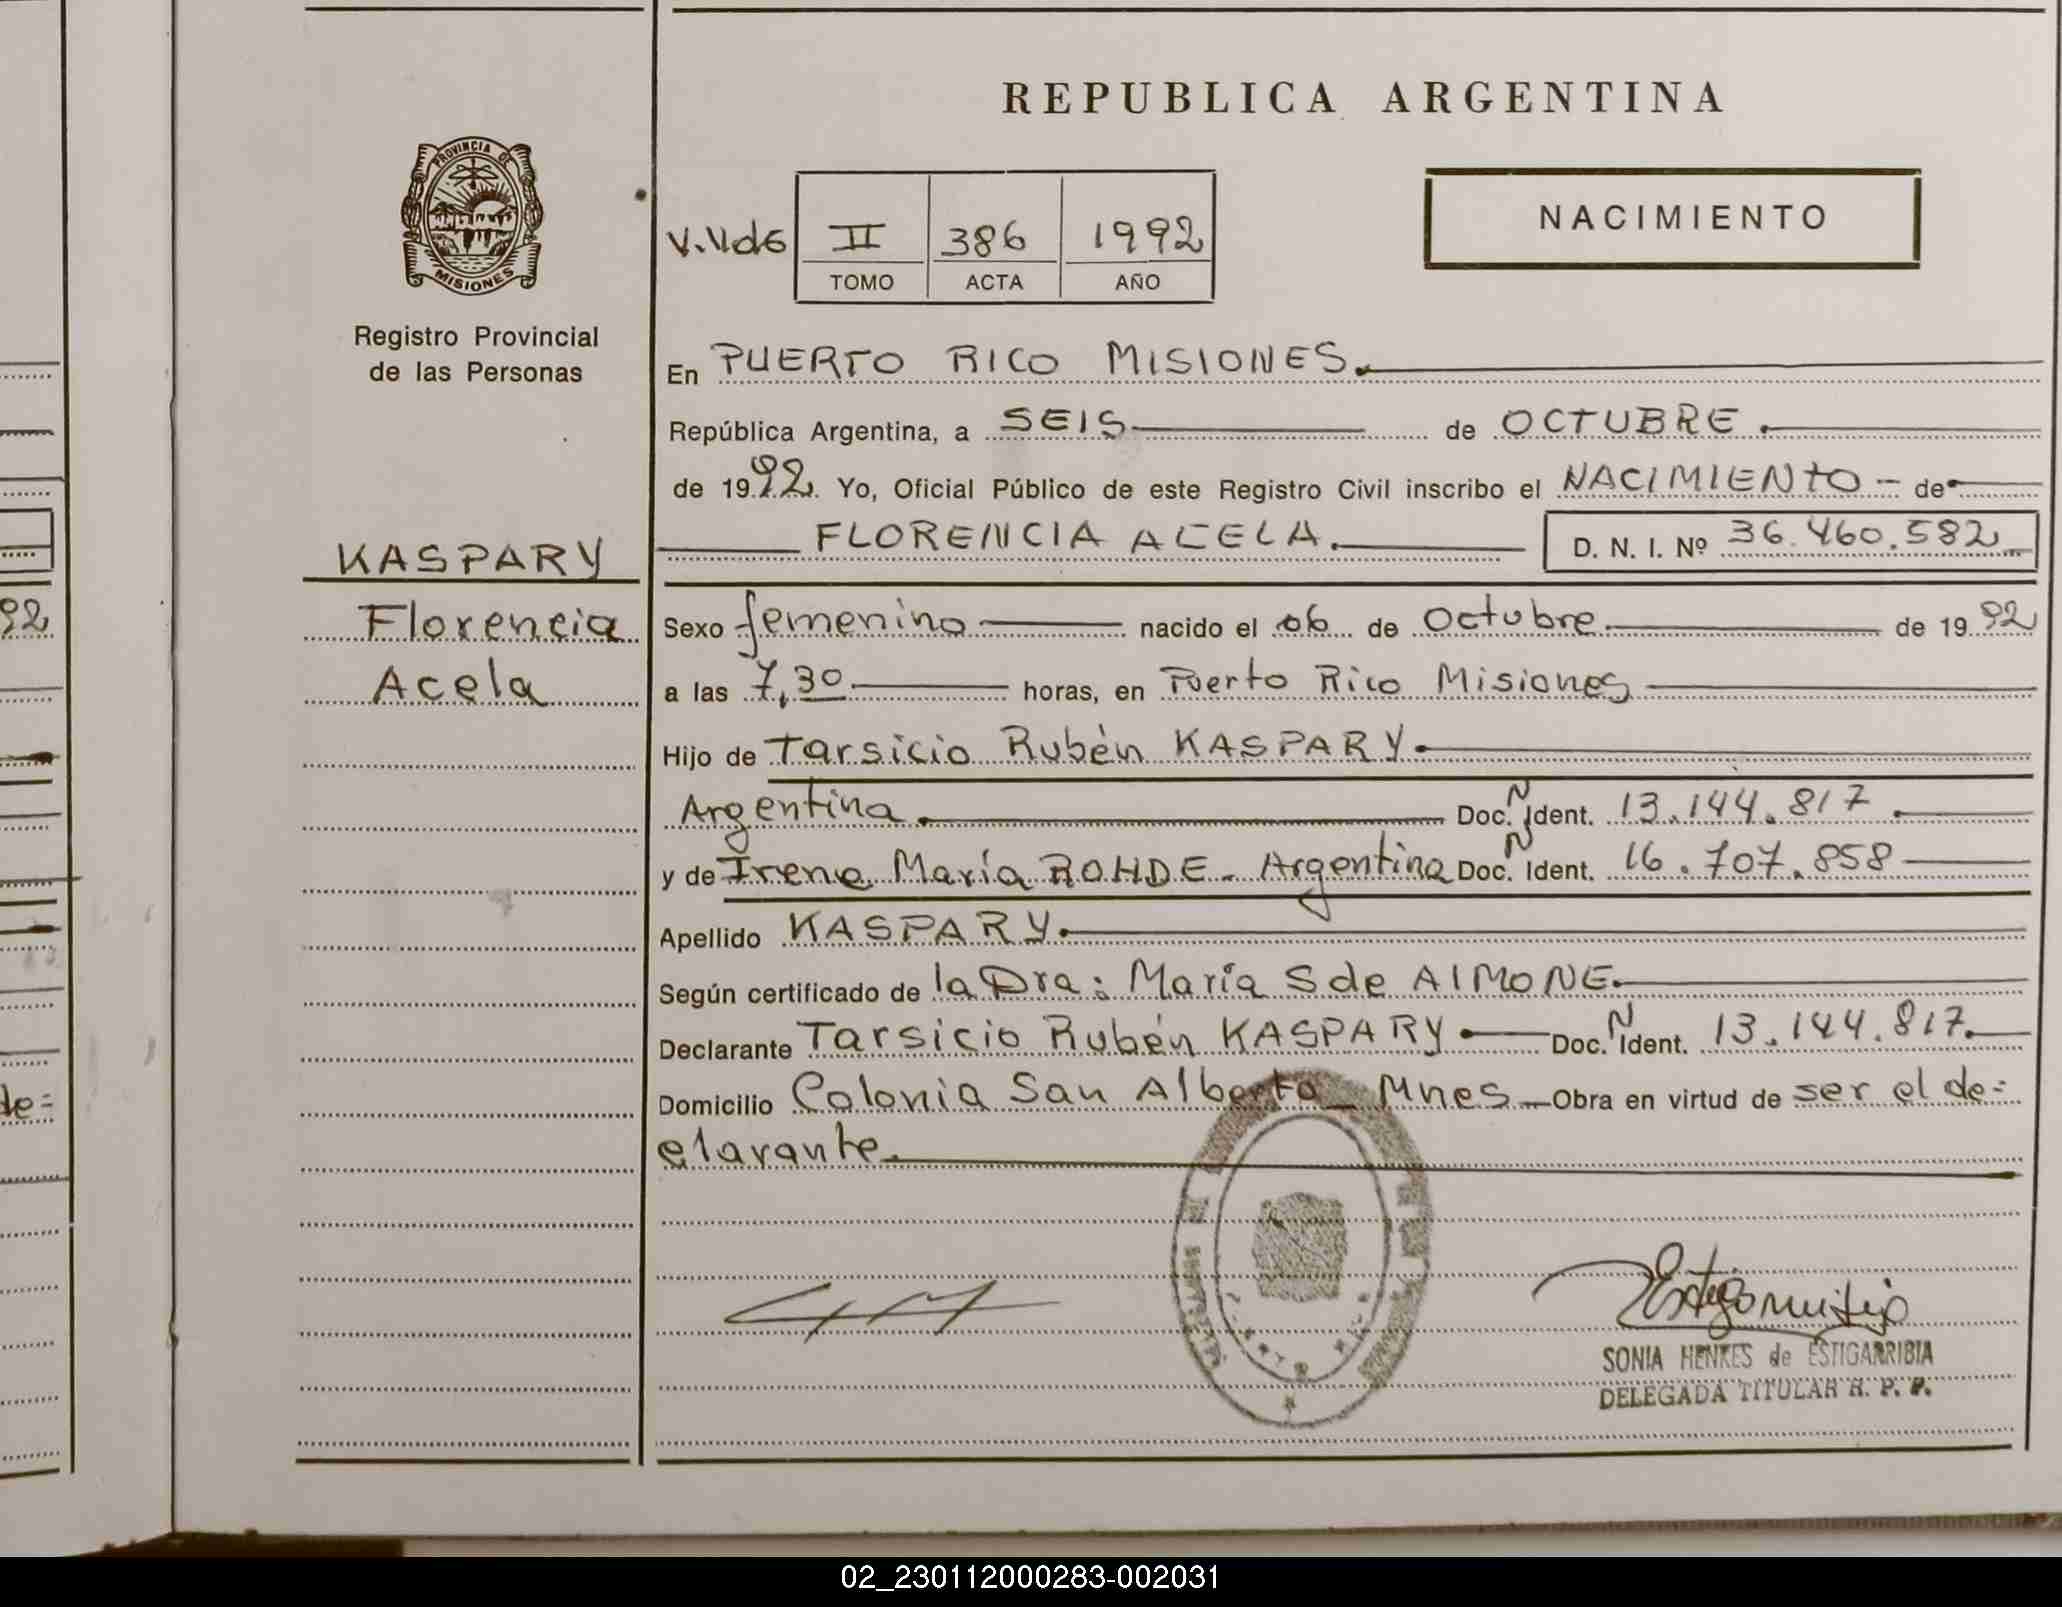 REPUBLICA ARGENTINA
PROVINCIA DE
MISIONES
Registro Provincial
de las Personas
KASPARY
Florencia
Acela
NACIMIENTO
II 386 1992
TOMO ACTA AÑO
En PUERTO RICO MISIONES.
República Argentina, a SEIS de OCTUBRE.
de 1992. Yo, Oficial Público de este Registro Civil inscribo el NACIMIENTO - de
FLORENCIA ACELA. D. N. I. Nº 36.460.582
Sexo femenino nacido el 06 de Octubre de 1992
a las 7,30 horas, en Puerto Rico Misiones
Hijo de Tarsicio Rubén KASPARY.
Argentina. Doc. N Ident. 13.144.817.
y de Irene María ROHDE. Argentina Doc. N Ident. 16.707.858
Apellido KASPARY.
Según certificado de la Dra: María S de AIMONE.
Declarante Tarsicio Rubén KASPARY. Doc. N Ident. 13.144.817.
Domicilio Colonia San Alberto Mnes. Obra en virtud de ser el de=
clarante.
SONIA HENKES de ESTIGARRIBIA
DELEGADA TITULAR R. P. P.
92
de=
02_230112000283-002031